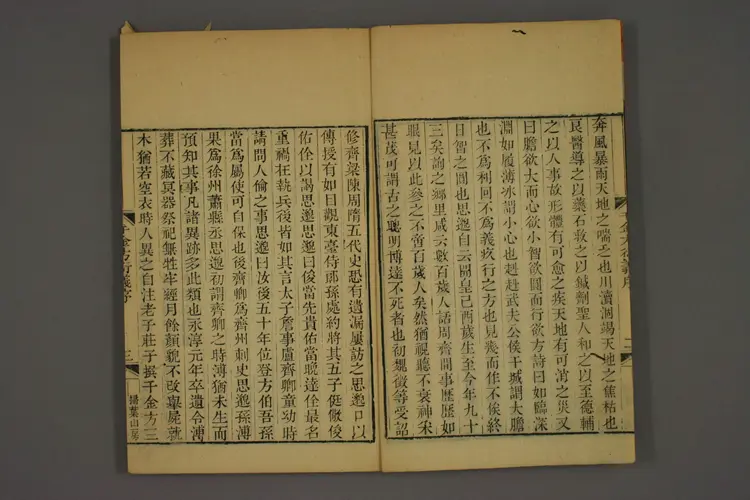 奔風暴雨天地之喘乏也川瀆涸竭天地之焦枯也
良醫導之以藥石救之以鍼劑聖人和之以至德輔
之以人事故形體有可愈之疾天地有可消之災又
曰膽欲大而心欲小智欲圓而行欲方詩曰如臨深
淵如履薄冰謂小心也赳赳武夫公侯干城謂大膽
也不爲利回不爲義疚行之方也見幾而作不俟終
日智之圓也思邈自云開皇己酉歲生至今年九十
三矣詢之鄉里咸云數百歲人話周齊間事歷歷如
眼見以此參之不啻百歲人矣然猶視聽不衰神采
甚茂可謂古之聰明博達不死者也初魏徵等受詔
修齊梁陳周隋五代史恐有遺漏屢訪之思邈口以
傳授有如目觀東臺侍郎孫處約將其五子侹儆俊
佑佺以謁思邈思邈曰俊當先貴佑當晚達佺最名
重禍在執兵後皆如其言太子詹事盧齊卿童幼時
請問人倫之事思邈曰汝後五十年位登方伯吾孫
當爲屬吏可自保也後齊卿爲齊州刺史思邈孫溥
果爲徐州蕭縣丞思邈初謂齊卿之時溥猶未生而
預知其事凡諸異跡多此類也永淳元年卒遺令薄
葬不藏冥器祭祀無牲牢經月餘顏貌不改舉屍就
木猶若空衣時人異之自注老子莊子撰千金方三
千金方衍義序
三
掃葉山房